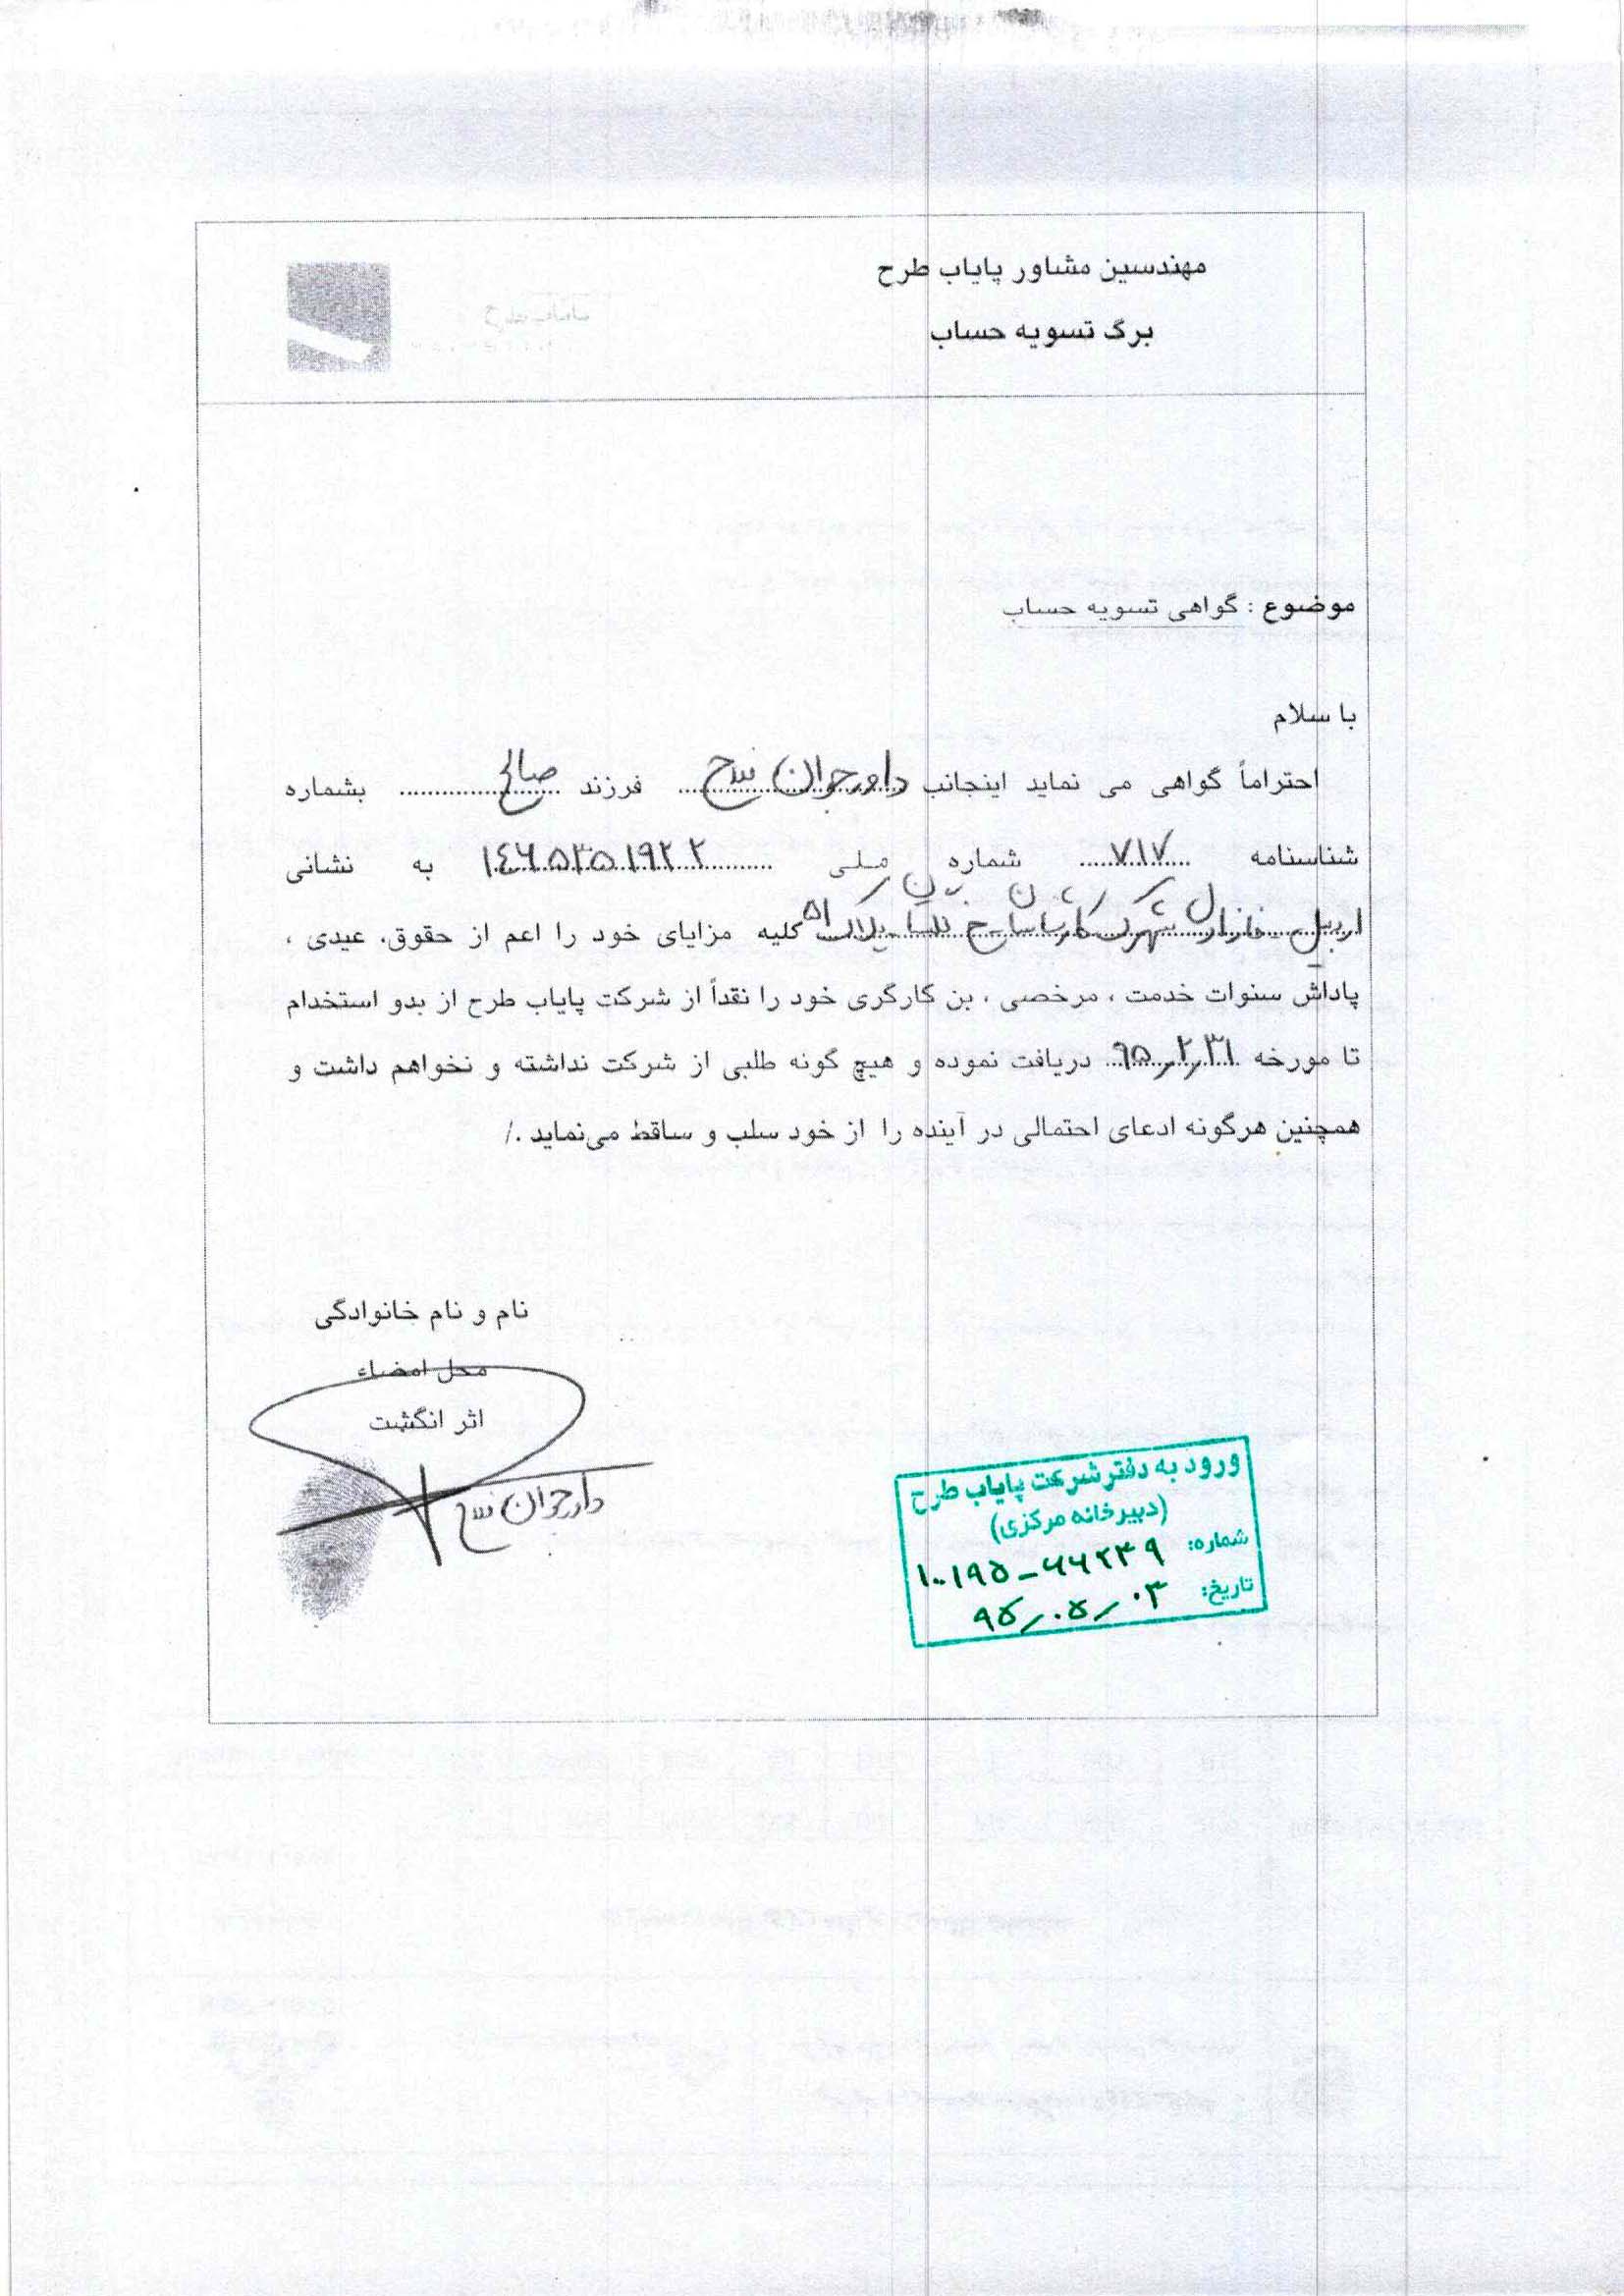 مهندسین مشاور پایاب طرح
برگ تسویه حساب
موضوع : گواهی تسویه حساب
با سلام
احتراماً گواهی می نماید اینجانب داور جوان فرزند صالح بشماره
شناسنامه ۷۱۷ شماره ملی ۱۴۶۵۳۵۱۹۲۲ به نشانی
اردبیل پلاک ۵۱ کلیه مزایای خود را اعم از حقوق، عیدی ،
پاداش سنوات خدمت ، مرخصی ، بن کارگری خود را نقداً از شرکت پایاب طرح از بدو استخدام
تا مورخه ۹۵٫۲٫۳۱ دریافت نموده و هیچ گونه طلبی از شرکت نداشته و نخواهم داشت و
همچنین هرگونه ادعای احتمالی در آینده را از خود سلب و ساقط می‌نماید ./
نام و نام خانوادگی
محل امضاء
اثر انگشت
داور جوان
ورود به دفتر شرکت پایاب طرح
(دبیرخانه مرکزی)
شماره: ۱۰۰۱۹۵-۶۶۲۳۹
تاریخ: ۹۵/۰۵/۰۳